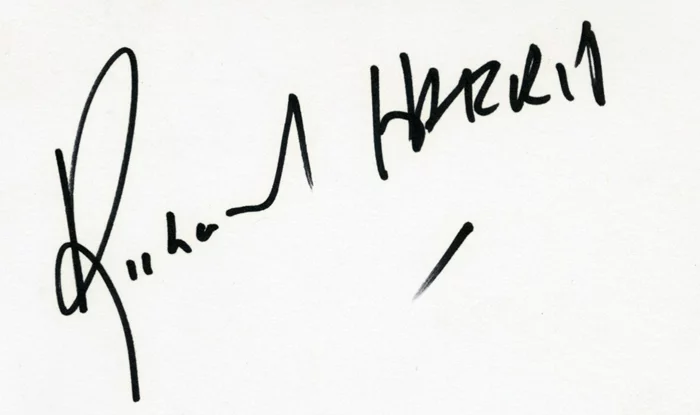 Richard HARRIS